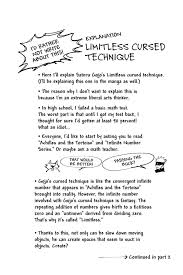 I'D RATHER
NOT WRITE
ABOUT THIS!
EXPLANATION
LIMITLESS CURSED
TECHNIQUE
• Here I'll explain Satoru Gojo's Limitless cursed technique.
(I'll be explaining this one in the manga as well.)
• The reason why I don't want to explain this is because
I'm an extreme liberal arts thinker.
• In high school, I failed a basic math test.
The worst part is that until I got my test back, I
thought for sure I'd gotten at least 70 percent!
What an idiot...
• Everyone, I'd like to start by asking you to read
"Achilles and the Tortoise" and "Infinite Number
Series." Or maybe ask a math teacher.
THAT WOULD
BE BETTER!
PASSING THE
BUCK?
• Gojo's cursed technique is like the convergent infinite
number that appears in "Achilles and the Tortoise"
brought into reality. However, the infinite number
involved with Gojo's cursed technique is fantasy. The
repeating addition of numbers gives birth to a fictitious
zero and an "unknown" derived from dividing zero.
That's why it's unlimited.
• Thanks to this, not only can he slow down moving
objects, he can create spaces that seem to suck in
objects. Create?
Continued in part 2